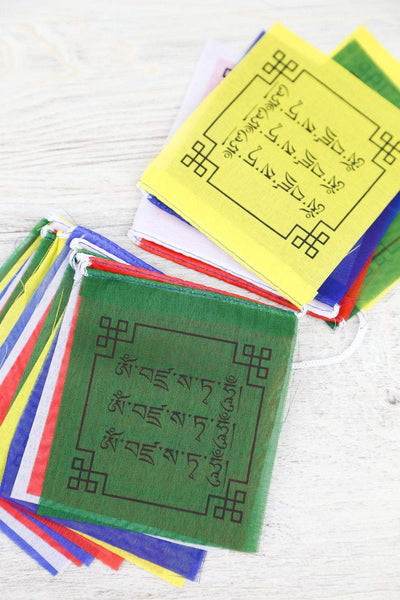 ཨོཾ་བཛྲ་ས་ཏྭ་ཧཱུྃ
ཨོཾ་བཛྲ་ས་ཏྭ་ཧཱུྃ
ཨོཾ་བཛྲ་ས་ཏྭ་ཧཱུྃ
ཨོཾ་བཛྲ་ས་ཏྭ་ཧཱུྃ
ཨོཾ་བཛྲ་ས་ཏྭ་ཧཱུྃ
ཨོཾ་བཛྲ་ས་ཏྭ་ཧཱུྃ